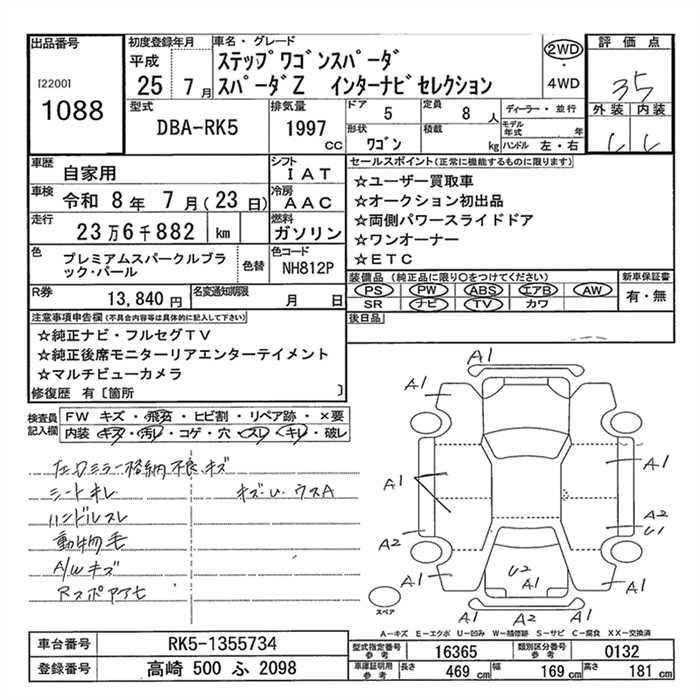 出品番号
[2200]
1088
初度登録年月
平成
25 7月
車名・グレード
ステップワゴンスパーダ
スパーダZ インターナビセレクション
2WD
・
4WD
評価点
35
外装 内装
型式
DBA-RK5
排気量
1997
cc
ドア
5
定員
8人
形状
ワゴン
積載
kg
ディーラー・並行
モデル年式 年
ハンドル 左・右
車歴
自家用
シフト
IAT
車検
令和 8年 7月(23日)
冷房
AAC
走行
23万6千882 km
燃料
ガソリン
色
プレミアムスパークルブラック・パール
色替
色コード
NH812P
R券
13,840円
名変通知期限
月 日
セールスポイント(正常に機能するものに限ります)
☆ユーザー買取車
☆オークション初出品
☆両側パワースライドドア
☆ワンオーナー
☆ETC
装備品 (純正品に限り○をつけてください)
PS PW ABS エアB AW
SR ナビ TV カワ
新車保証書
有・無
後日品
注意事項申告欄(不具合内容等は具体的に記入して下さい)
☆純正ナビ・フルセグTV
☆純正後席モニターリアエンターテイメント
☆マルチビューカメラ
修復歴 有〔箇所 〕
検査員記入欄
FW キズ・飛石・ヒビ割・リペア跡・×要
内装・キズ・汚レ・コゲ・穴・スレ・キレ・破レ
左Dミラー格納不良、キズ
シートキレ
キズ・U・ウスA
ハンドルスレ
動物毛
A/Wキズ
A1
A1
A1
A1
A1
A2
U1
A2
A1
U2
A1
A1
A1
A2
A1
スペア
A-キズ E-エクボ U-凹み W-補修跡 S-サビ C-腐食 XX-交換済
車台番号
RK5-1355734
登録番号
高崎 500 ふ 2098
型式指定番号
参考
16365
類別区分番号
参考
0132
車庫証明用
参考
長さ
469 cm
幅
169 cm
高さ
181 cm